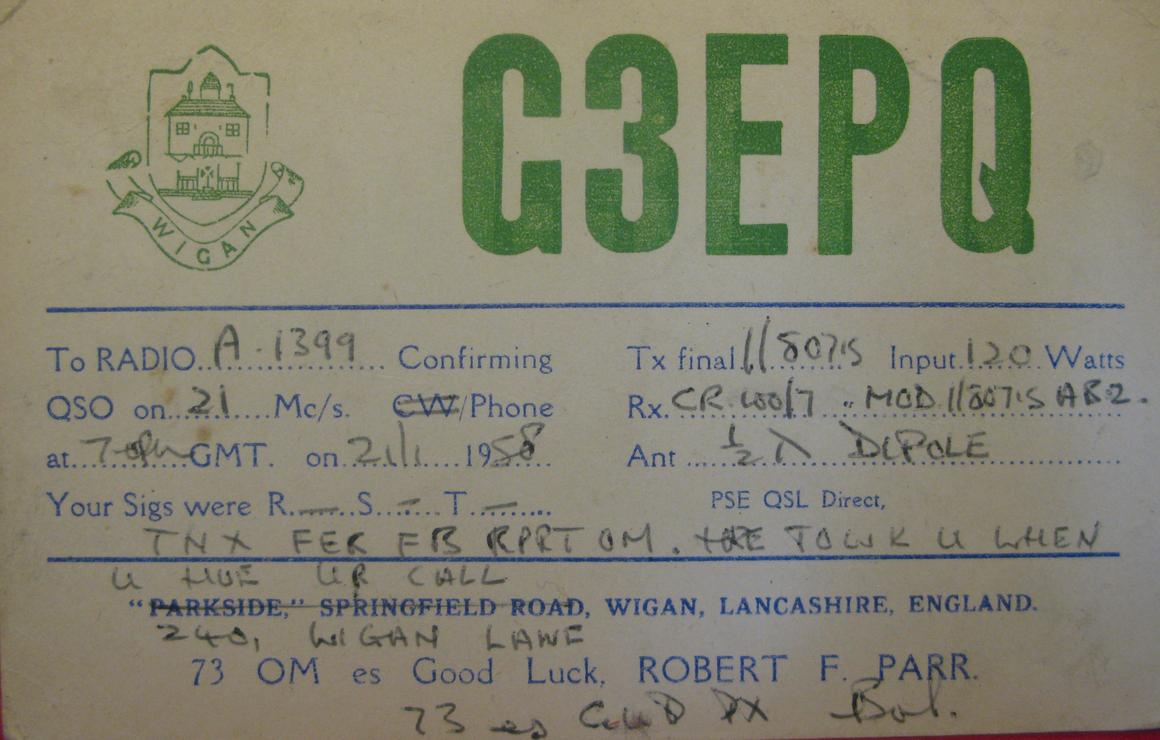 G3EPQ
WIGAN
To RADIO..A.1399.... Confirming
QSO on..21....Mc/s. CW/Phone
at.......GMT. on..21/1....1958..
Your Sigs were R..—..S..—..T..—....
Tx final.1/807's Input.120.Watts
Rx.CR 100/7 " MOD 1/807's AB2.
Ant ....½ λ DIPOLE........
PSE QSL Direct,
TNX FER FB RPRT OM. HPE TO WK U WHEN
U HVE UR CALL
"PARKSIDE," SPRINGFIELD ROAD, WIGAN, LANCASHIRE, ENGLAND.
240, WIGAN LANE
73 OM es Good Luck, ROBERT F. PARR.
73 es Gud DX Bob.